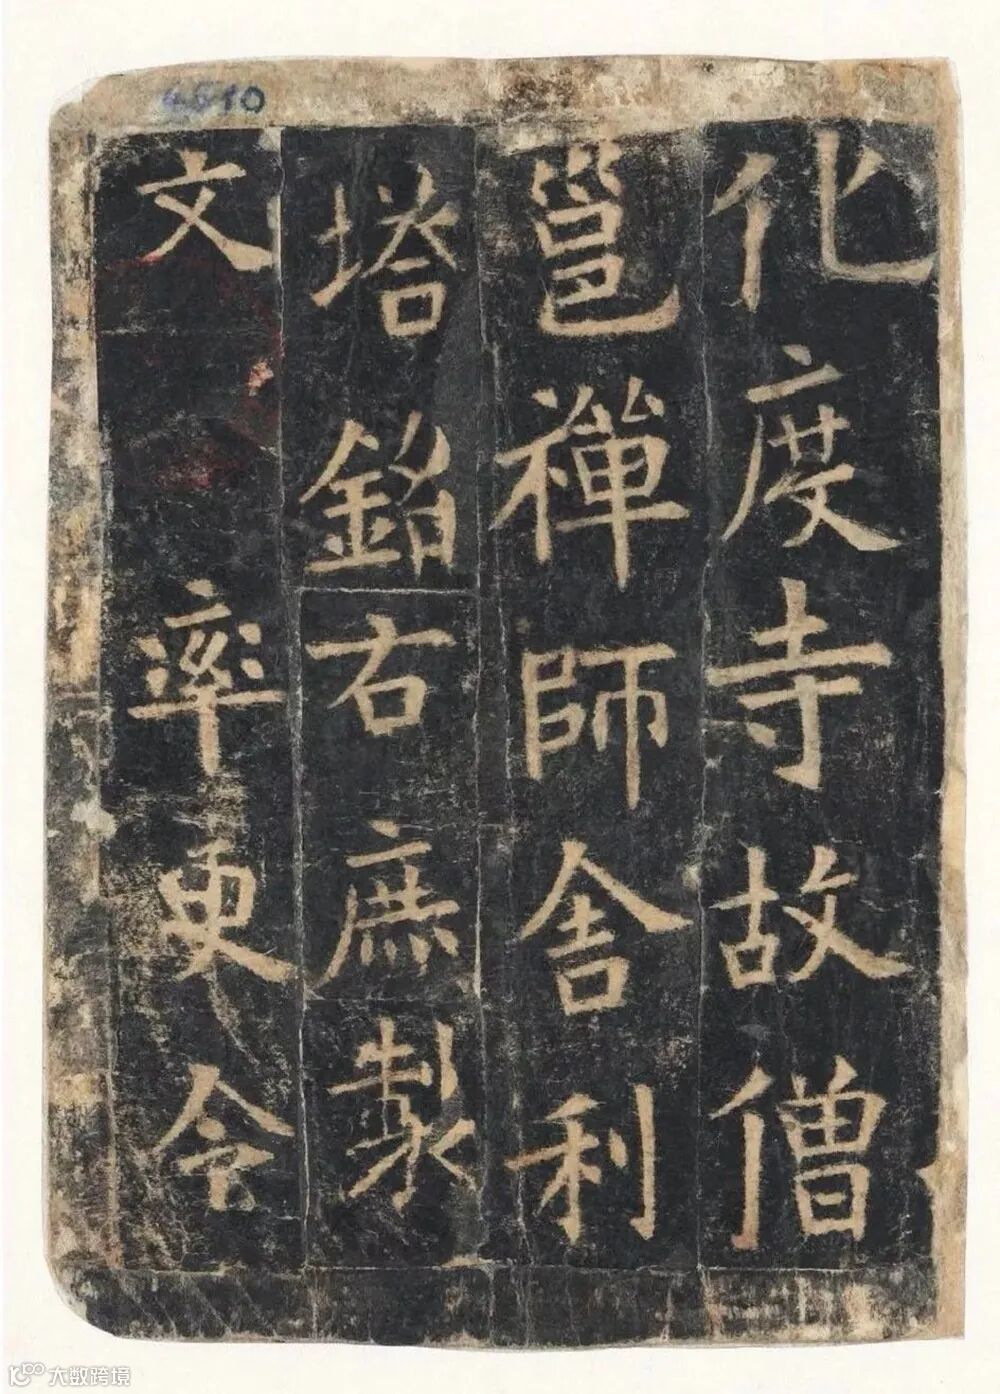 4510
化度寺故僧
邕禪師舍利
塔銘右庶製
文 率更令
大数跨境